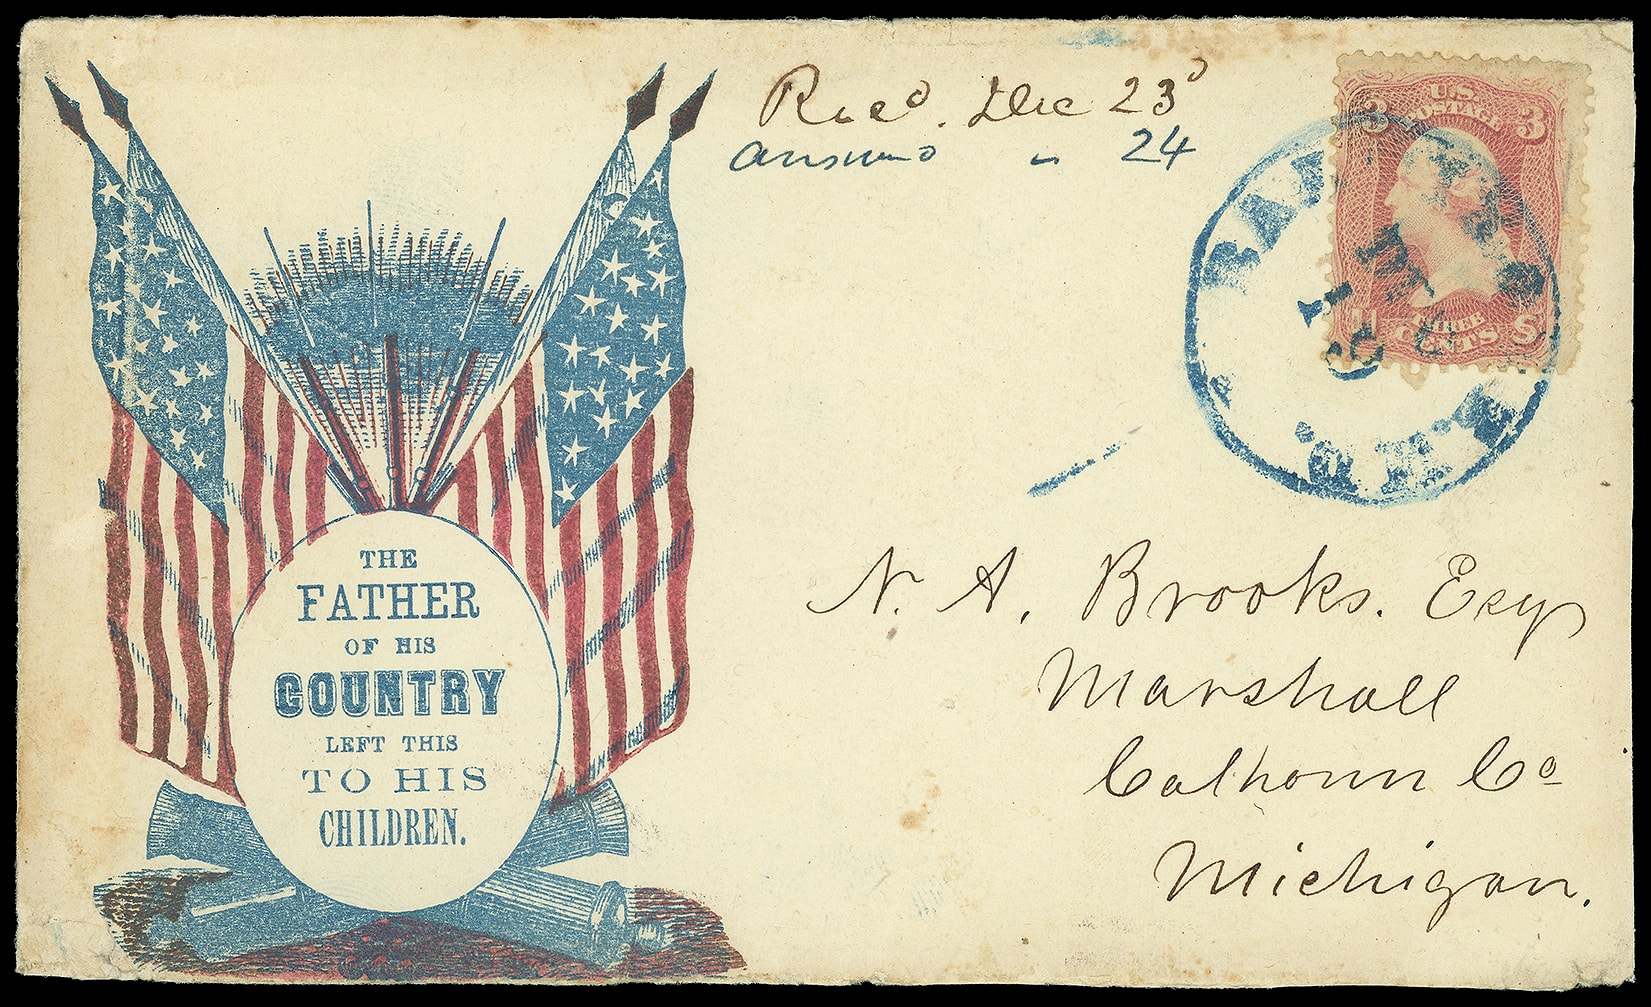 Recd. Dec 23d
Answerd " 24
U.S. POSTAGE
3 3
THREE CENTS
U S
DEC
THE
FATHER
OF HIS
COUNTRY
LEFT THIS
TO HIS
CHILDREN.
N. A. Brooks. Esq
Marshall
Calhoun Co
Michigan.